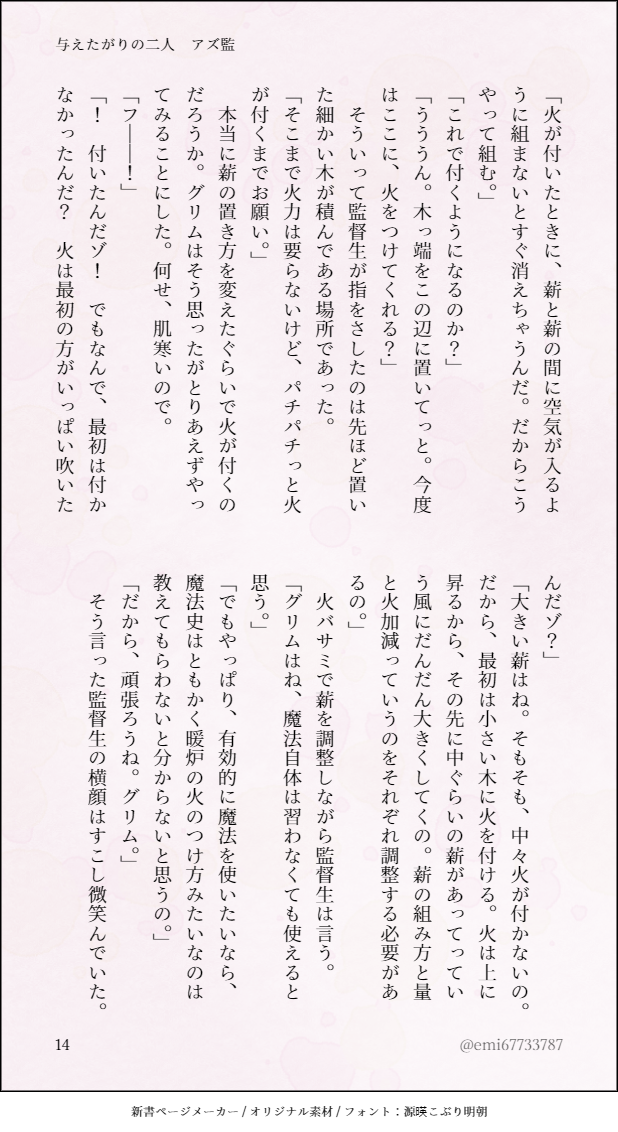 与えたがりの二人　アズ監
「火が付いたときに、薪と薪の間に空気が入るよ
うに組まないとすぐ消えちゃうんだ。だからこう
やって組む。」
「これで付くようになるのか？」
「うううん。木っ端をこの辺に置いてっと。今度
はここに、火をつけてくれる？」
　そういって監督生が指をさしたのは先ほど置い
た細かい木が積んである場所であった。
「そこまで火力は要らないけど、パチパチっと火
が付くまでお願い。」
　本当に薪の置き方を変えたぐらいで火が付くの
だろうか。グリムはそう思ったがとりあえずやっ
てみることにした。何せ、肌寒いので。
「フ――！」
「！　付いたんだゾ！　でもなんで、最初は付か
なかったんだ？　火は最初の方がいっぱい吹いた
んだゾ？」
「大きい薪はね。そもそも、中々火が付かないの。
だから、最初は小さい木に火を付ける。火は上に
昇るから、その先に中ぐらいの薪があってってい
う風にだんだん大きくしてくの。薪の組み方と量
と火加減っていうのをそれぞれ調整する必要があ
るの。」
　火バサミで薪を調整しながら監督生は言う。
「グリムはね、魔法自体は習わなくても使えると
思う。」
「でもやっぱり、有効的に魔法を使いたいなら、
魔法史はともかく暖炉の火のつけ方みたいなのは
教えてもらわないと分からないと思うの。」
「だから、頑張ろうね。グリム。」
　そう言った監督生の横顔はすこし微笑んでいた。
14
@emi67733787
新書ページメーカー / オリジナル素材 / フォント：源暎こぶり明朝